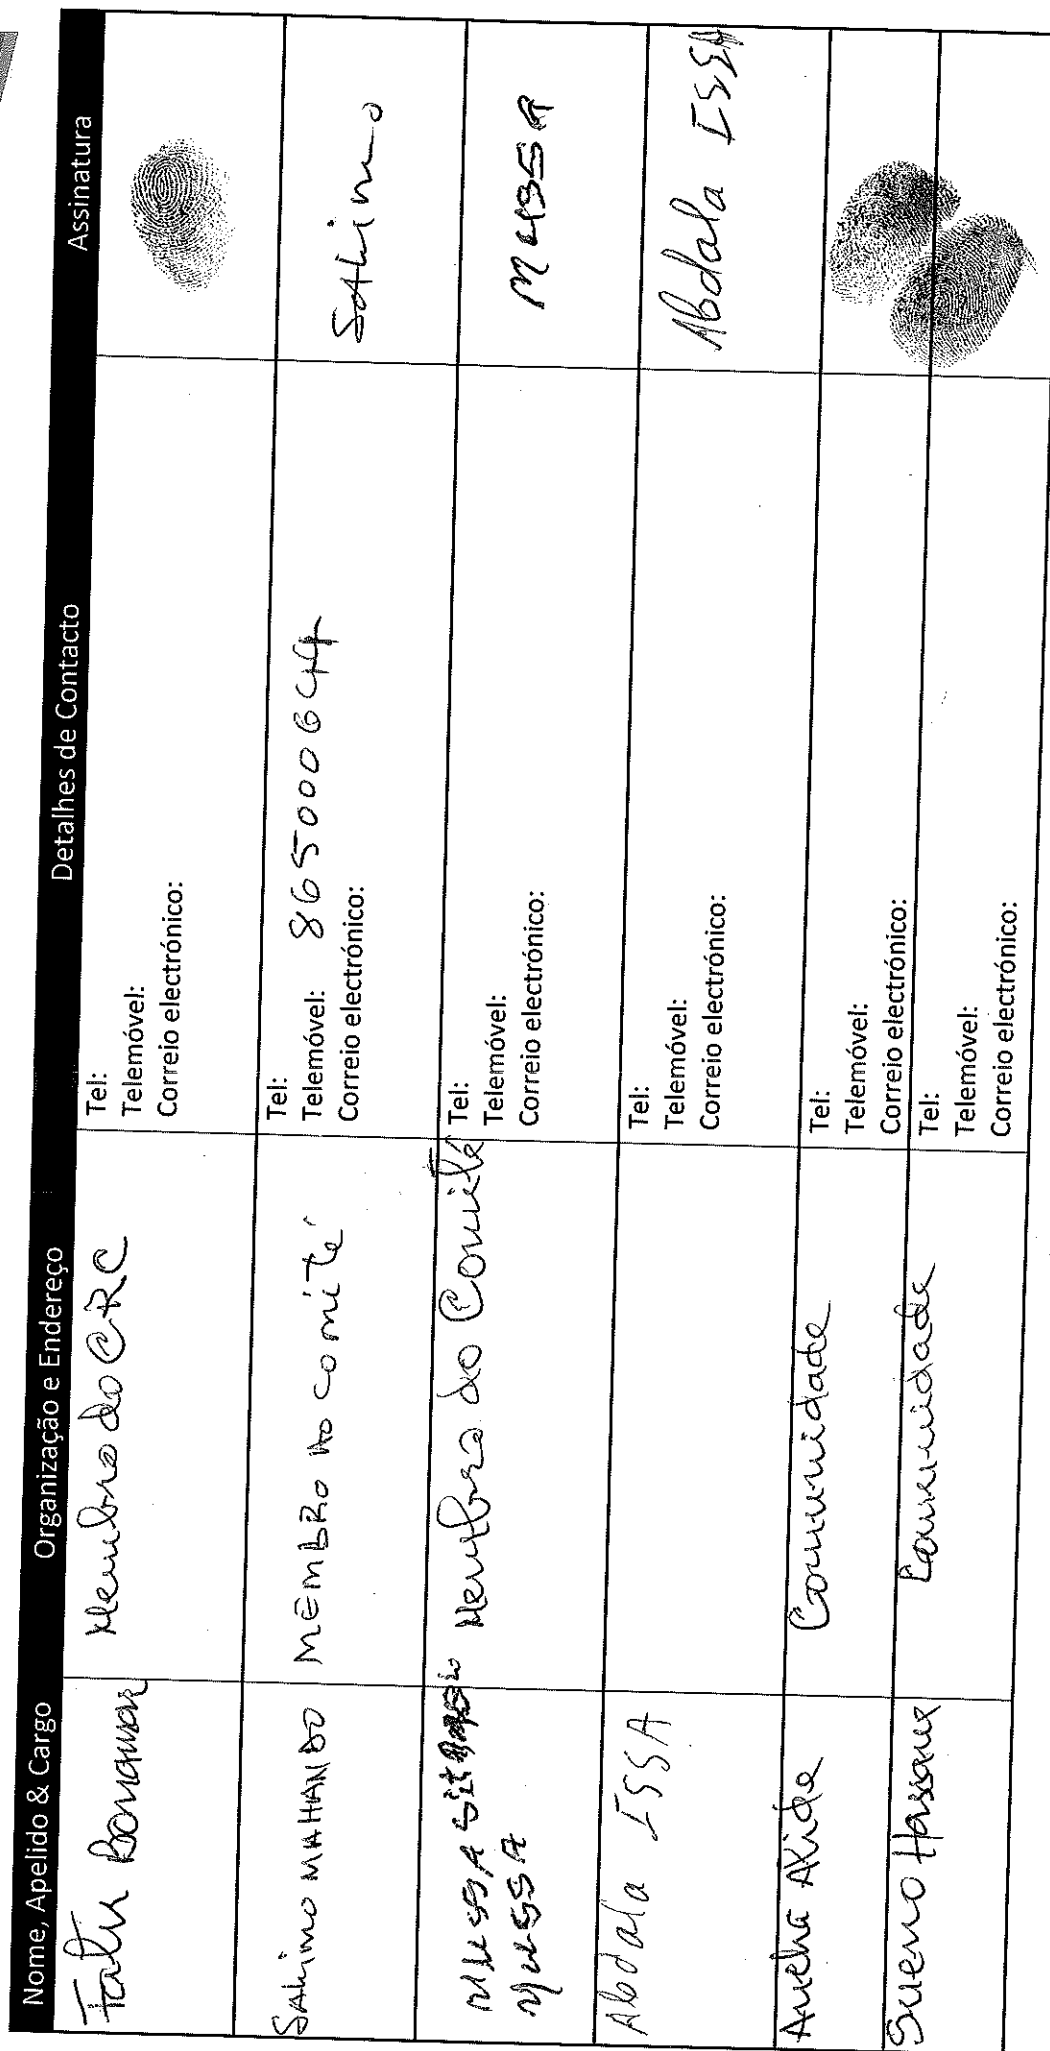 Nome, Apelido & Cargo Organização e Endereço Detalhes de Contacto Assinatura
Fatu Membro do CRC
Tel:
Telemóvel:
Correio electrónico:
Sahimo MAHANDO MEMBRO do comité
Tel:
Telemóvel: 865000644
Correio electrónico:
Sahimo
MUSSA
MUSSA
Membro do Comité
Tel:
Telemóvel:
Correio electrónico:
MUSSA
Abdala ISSA
Tel:
Telemóvel:
Correio electrónico:
Abdala ISSA
Awcha Alide Comunidade
Tel:
Telemóvel:
Correio electrónico:
Suemo Hassane Comunidade
Tel:
Telemóvel:
Correio electrónico: